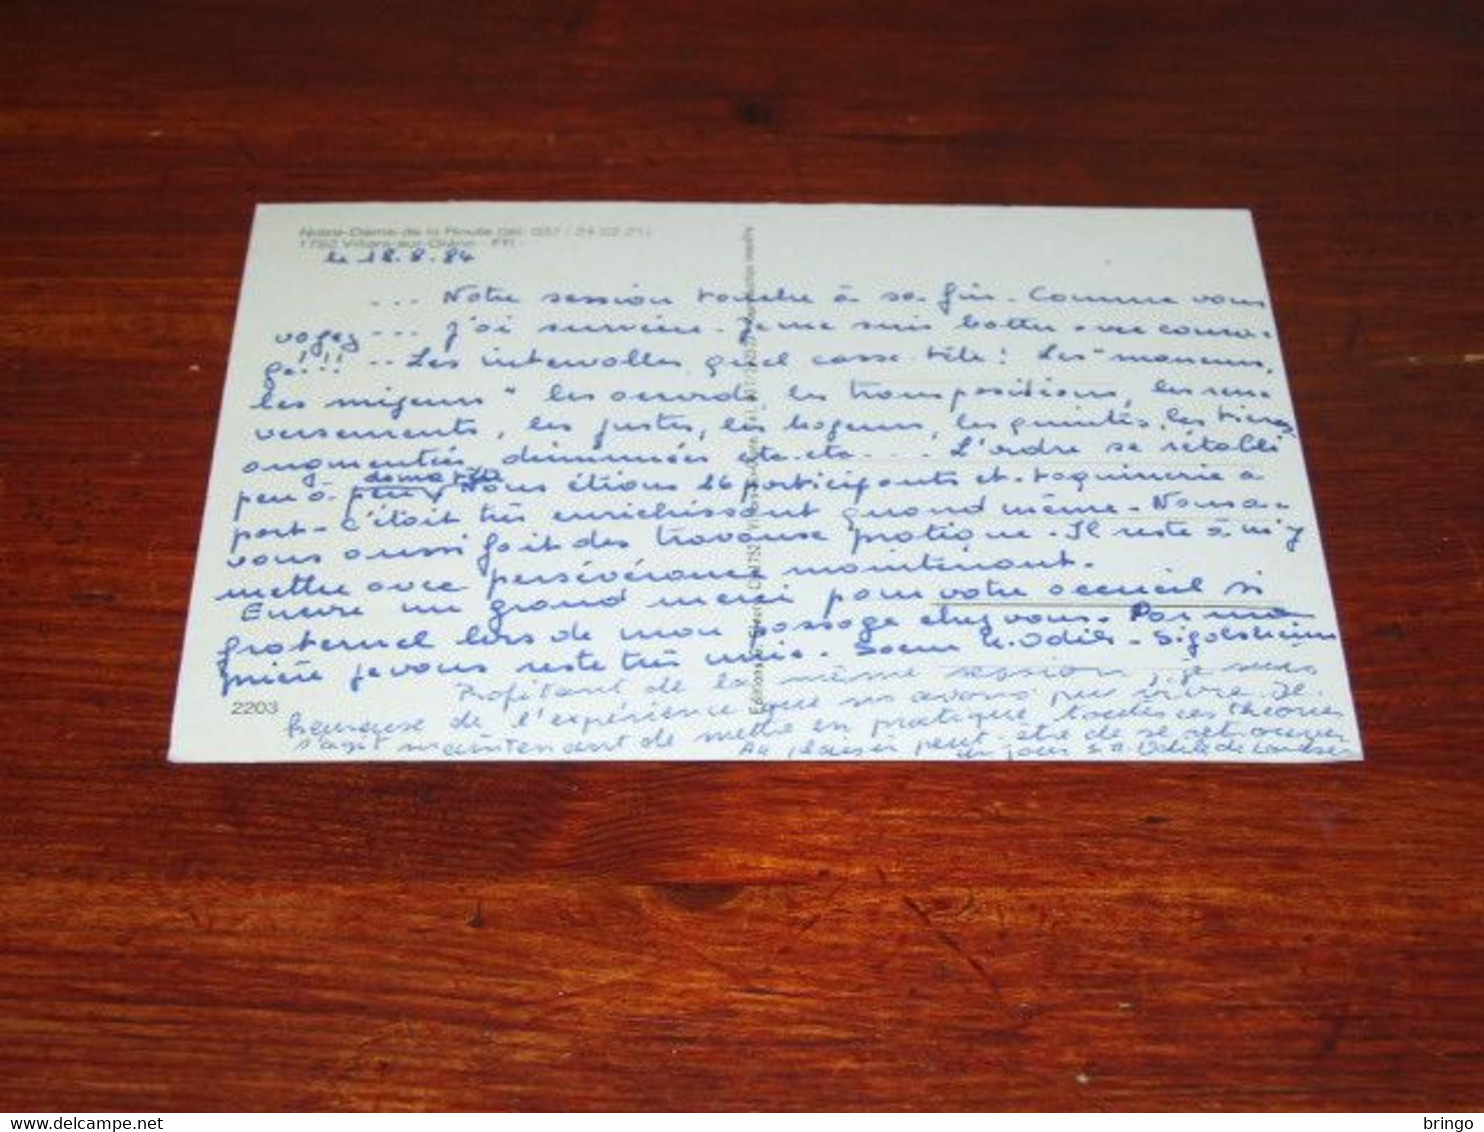 Notre-Dame de la Route (tél. 037 / 24 02 21)
1752 Villars-sur-Glâne - FR -
le 18.8.84
... Notre session touche à sa fin. Comme vous
voyez ... j'ai survécu. Je me suis battue avec coura-
ge!!! .. Les intervalles quel casse-tête! Les "maneurs,
les mijeurs" les accords, les transpositions, les ren-
versements, les justes, les bogeurs, les quintes, les tierces
augmentées, diminuées etc. etc... L'ordre se rétablit
peu à peu dans ma tête. Nous étions 16 participants et. taquinerie à
part - c'était très enrichissant quand même. Nous a-
vons aussi fait des travaux pratiques. Il reste à m'y
mettre avec persévérance maintenant.
Encore un grand merci pour votre accueil si
fraternel lors de mon passage chez vous. Par ma
prière je vous reste très unie. Soeur M. Odile - Sigolsheim
Profitant de la même session, je suis
heureuse de l'expérience que ns avons pu vivre. Il
s'agit maintenant de mettre en pratique toutes ces théories
Au plaisir peut-être de se retrouver
un jour S. M. Odile de Landser
2203